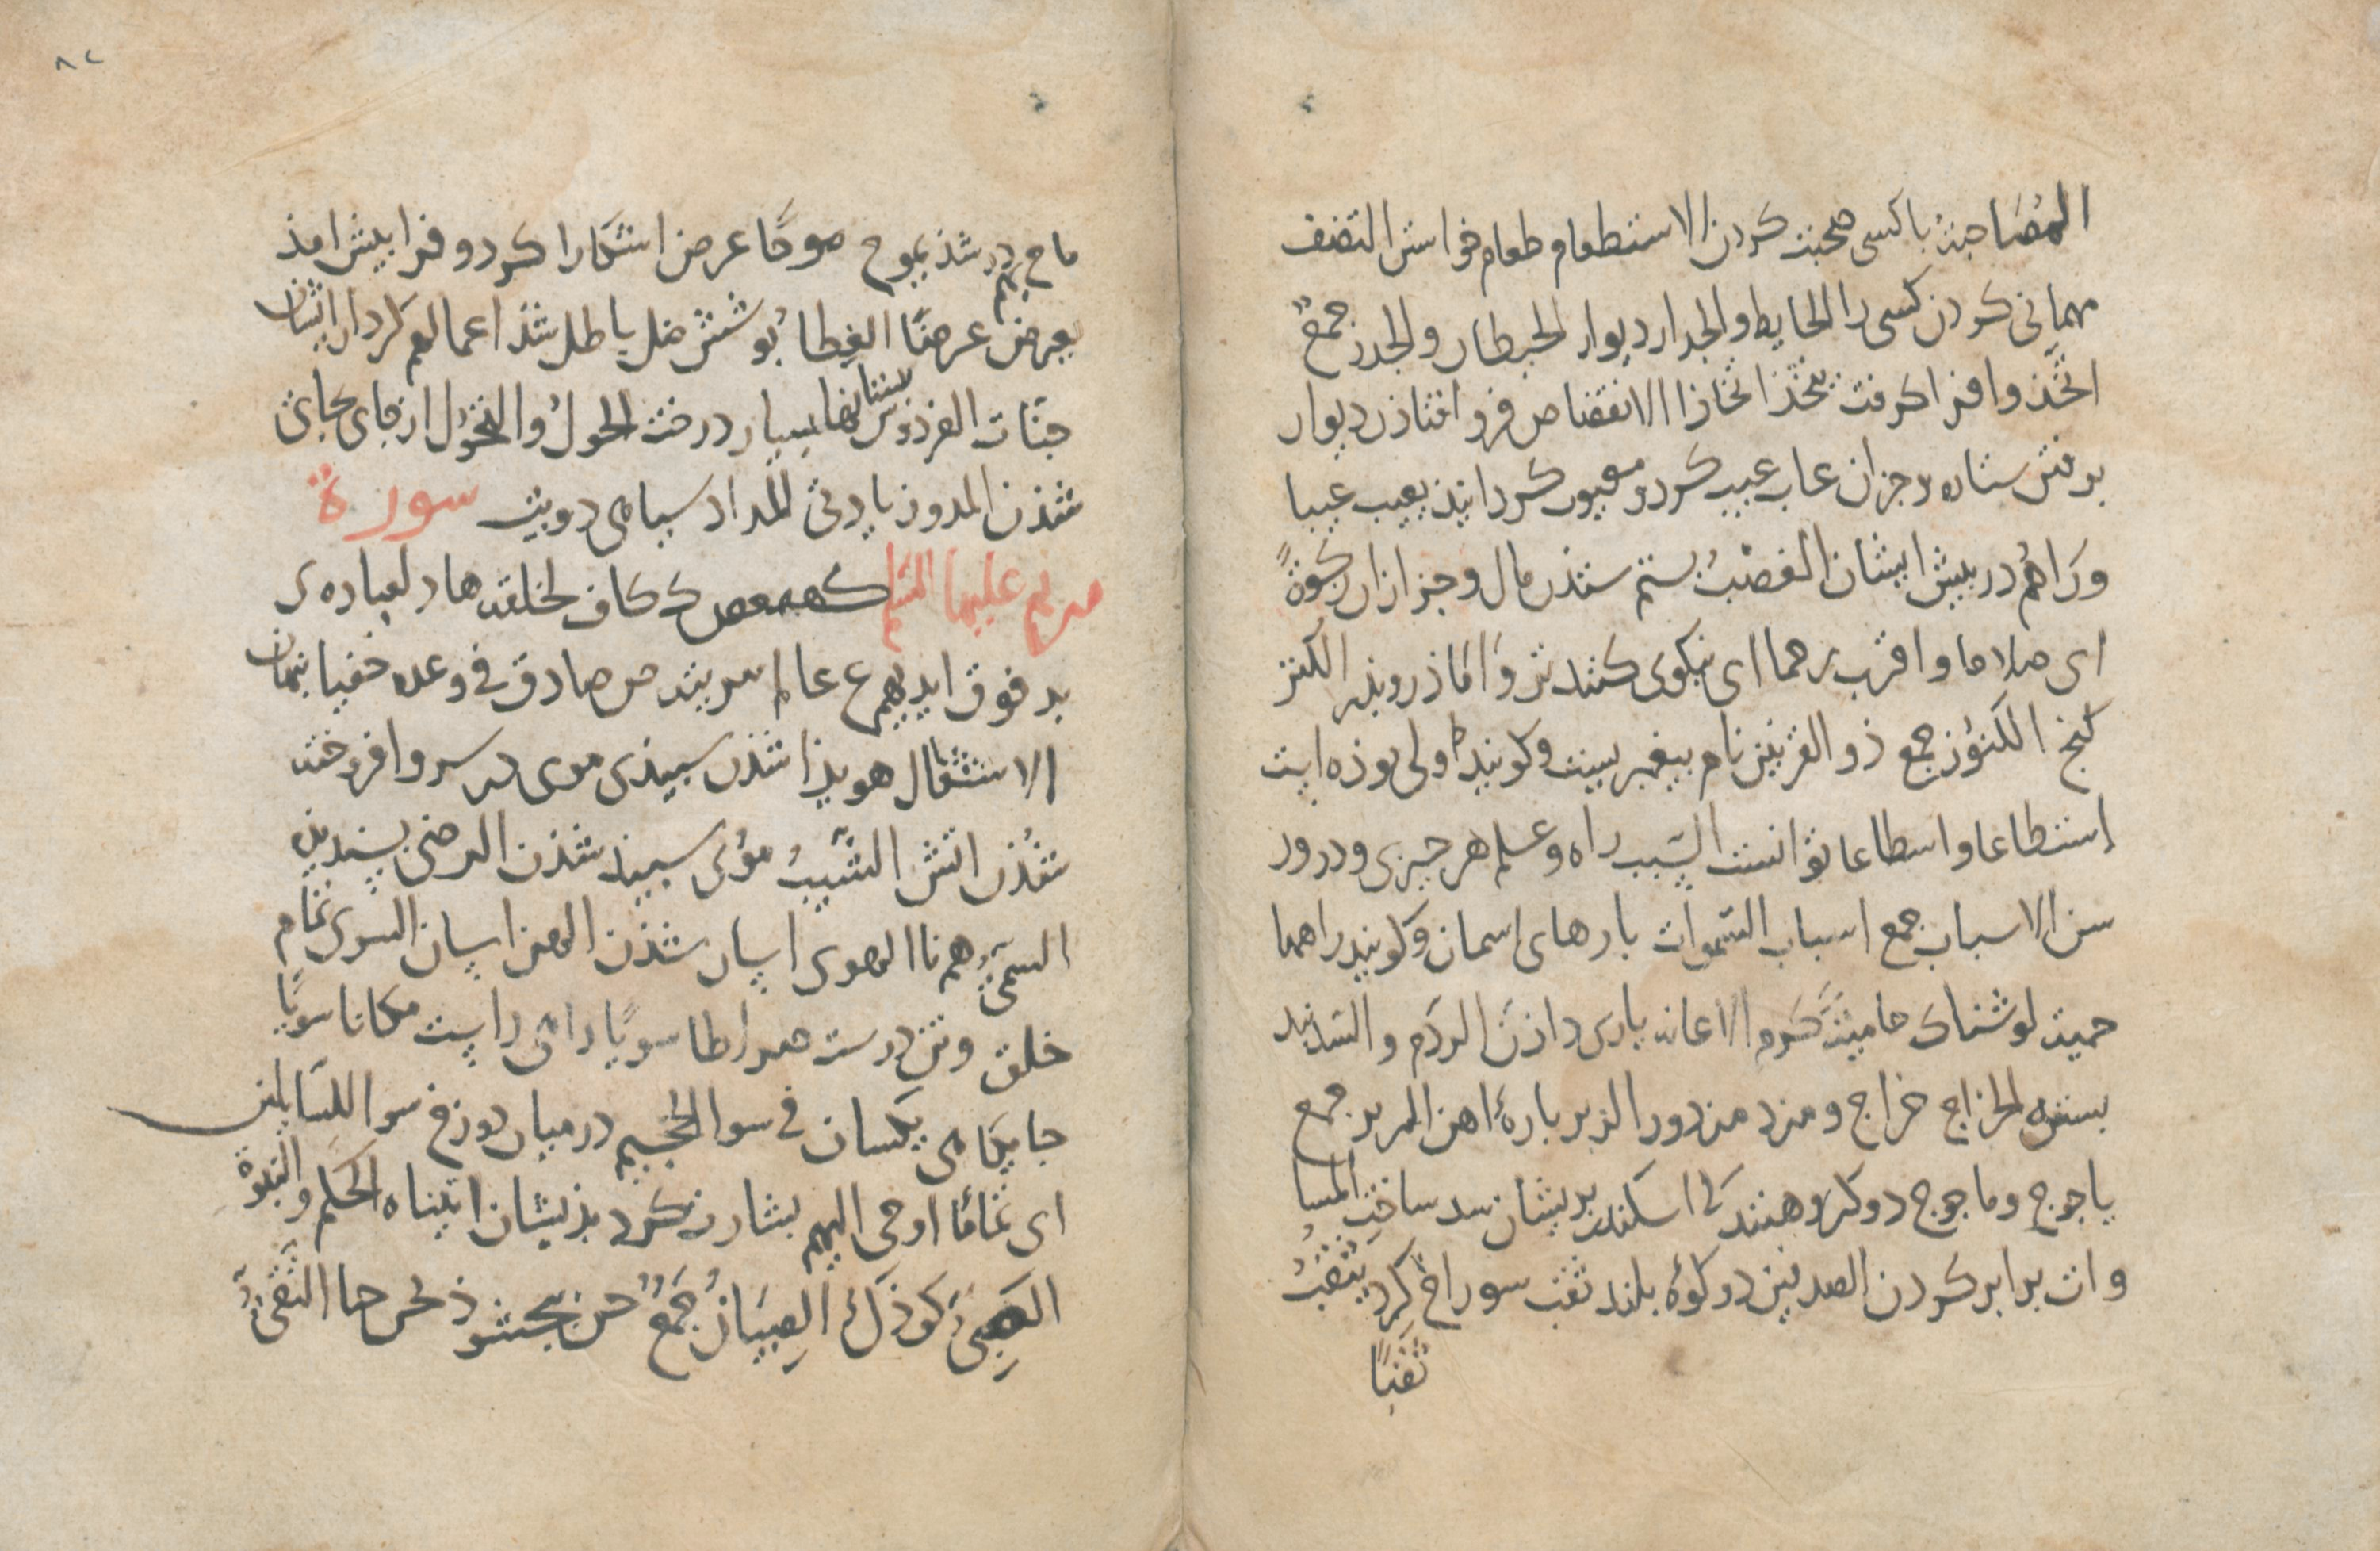 المُصَاحبةُ باکسی صحبت کردن الاستطعام طعام خواستن التضیف
مهمانی کردن کسی را الحایط والجدار دیوار الحیطان والجدر جمعٌ
اتّخذ وا فرا کرفت یتّخذ اتّخاذا الانقضاض فرو افتاذن دیوار
برفتن ستاره و جزان عاب عیب کرد و معیوب کردانید یعیب عیبا
وَرَاهُم در پیش ایشان الغصْبُ بستم ستذن مال و جز ازان زکوةً
ای صلاحا واقرب رحما ای نیکوی کننده تر وَ امّا ذر وبذر الکنز
کنج الکنوُز جمع ذو القرنین نام پیغمبریست و کویند ولی بوذه است
إستطاعا واسطاعا توانست السّبب راه و علم هر چیزی و در ور
سن الاسباب جمع اسباب السّموات بارهای اسمان و کویند راهها
حمیة لوشناک حامیةً کرم الاعانه یاری داذن الردم والسّد بند
بستن الخراج خراج و مزد مزدور الزبر بارهٔ اهن الزبر جمع
یاجوج وماجوج دو کروهند که اسکندر بریشان سد ساخت المسا
وات برابر کردن الصدفین دو کوُه بلند ثقب سوراخ کرد یثقبُ
ثقبًا
ماج بهم در شذ یموج موجًا عرض اشکارا کرد و فرا پیش امذ
یعرض عرضًا الغِطاءُ پوشش ضل باطل شذ اعمالهم کردار ایشان
جنّات الفردوس بستانها بسیار درخت الحِولُ والتّحوّل از جای بجای
شذن المدون یاذی المداد سیاهی دویت سورة
مریم علیها السّلم کهیعص ک کاف لخلقه هاد لعباده ی
ید فوق ایدیهم ع عالم ببریته ص صادق فی وعده خفیا پنهان
الاشتعال هویذا شذن سپیذی موی در سر و افروخته
شُذن اتش الشّیبُ مؤی سپید شذن الرضیّ پسندیده
السمیّ همنا الهوی اسان شذن الهین اسان السوی تمام
خلق و تن درست صراطا سویًا راهی راست مکانا سویًا
جایکاهی یکسان فی سوا الجحیم در میان دوزخ سوا للسّایلین
ای تمامًا اوحی الیهم بشارت کرد بذیشان اتیناه الحکم والنّبوّة
الصَبیُّ کوذک الصِبیَانُ جَمعٌ حن بخشوذ یحن حنا التّقیُّ